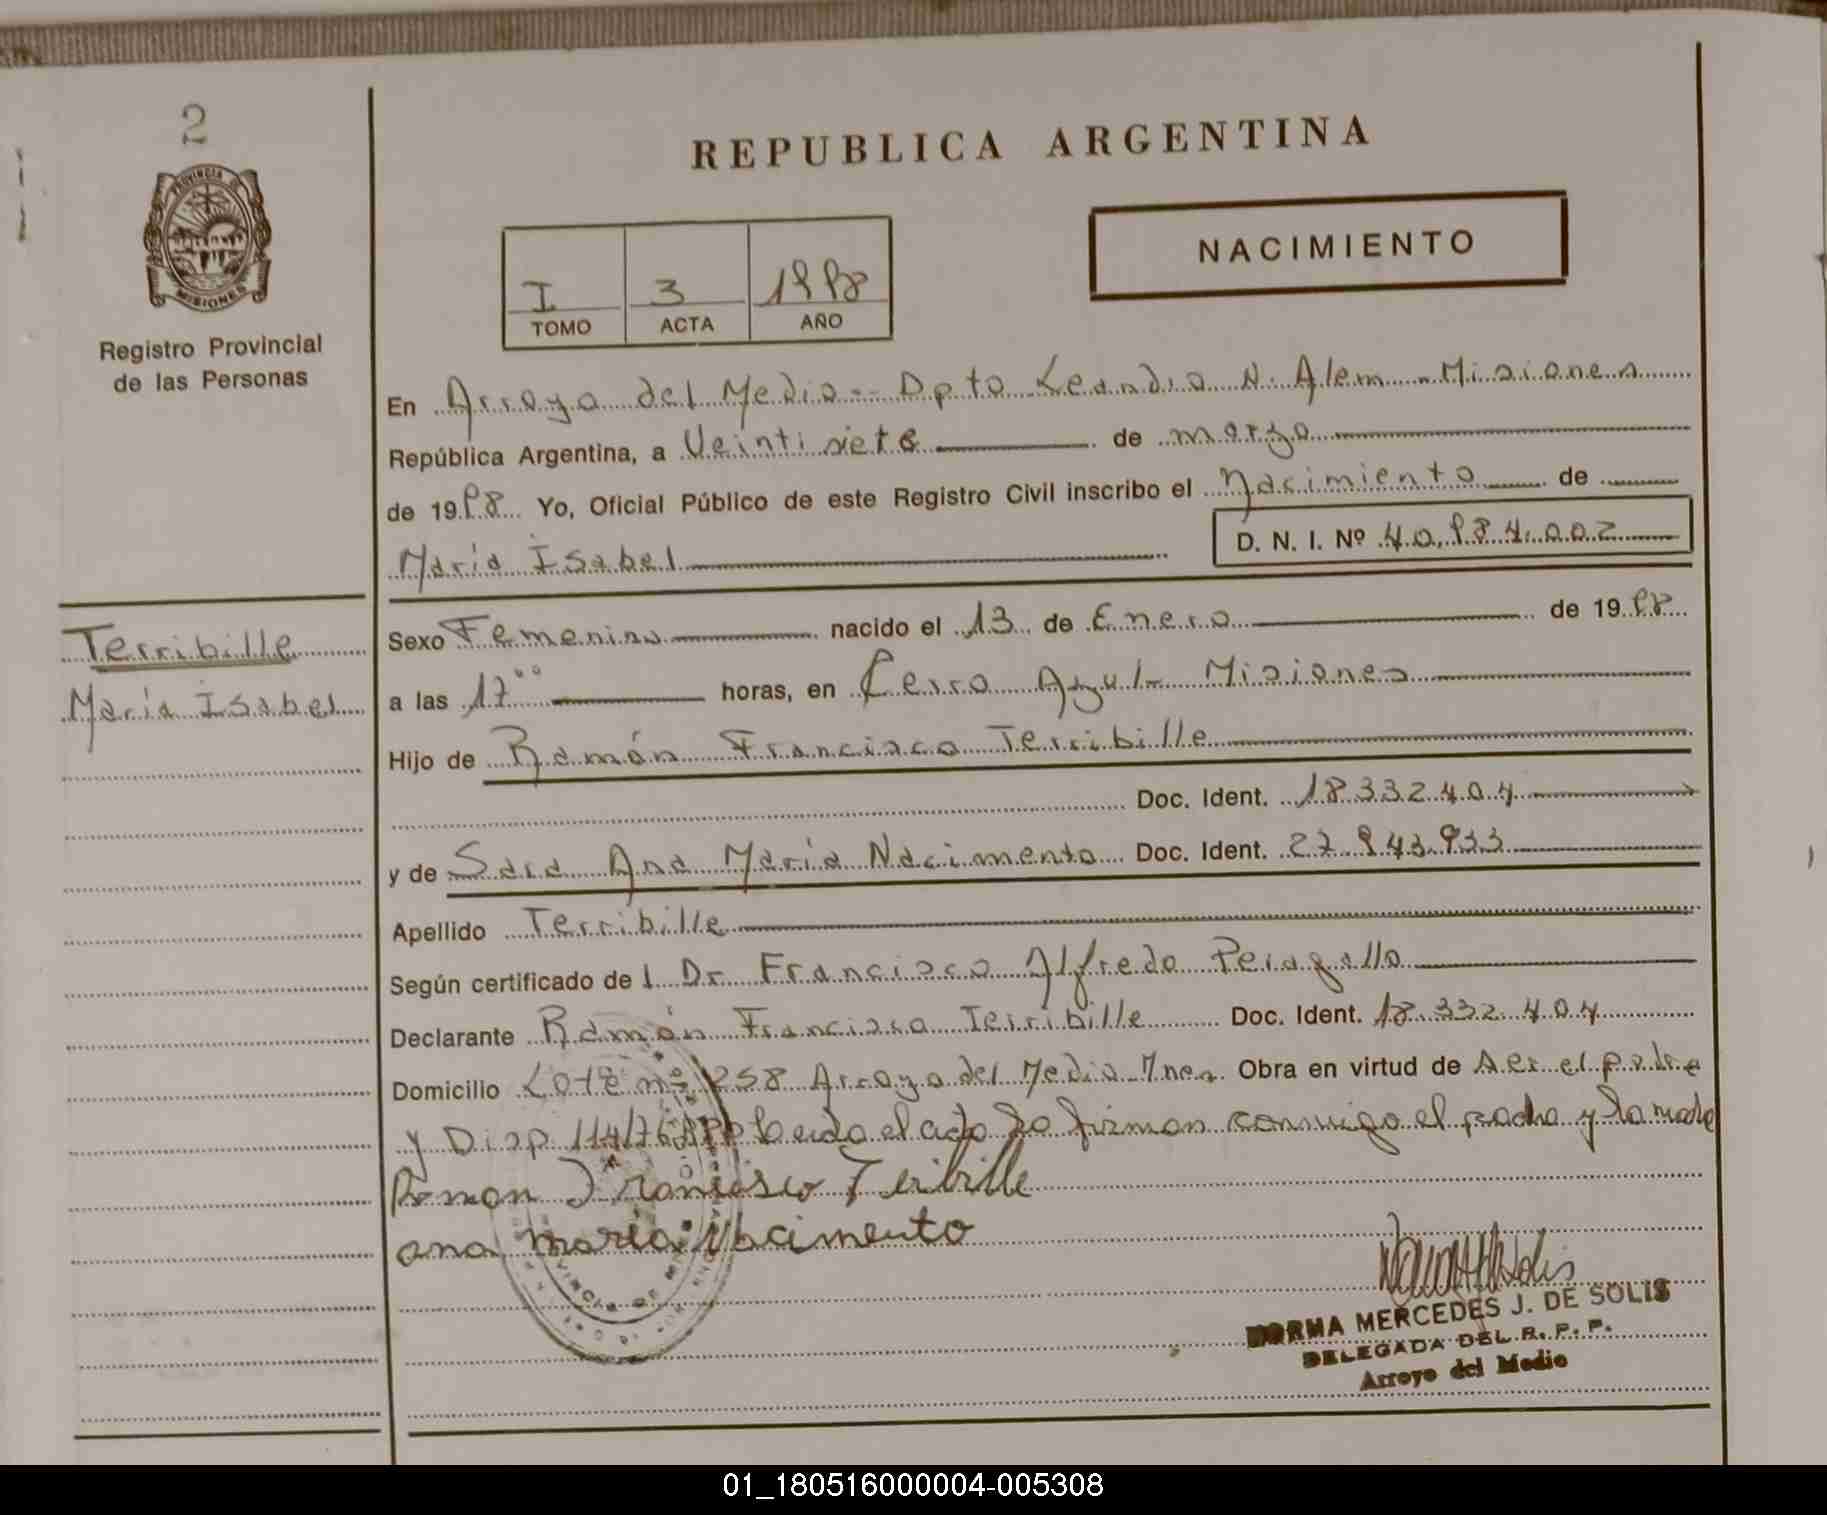 2
PROVINCIA DE
MISIONES
Registro Provincial
de las Personas
REPUBLICA ARGENTINA
NACIMIENTO
I 3 1998
TOMO ACTA AÑO
En Arroyo del Medio - Dpto Leandro N. Alem - Misiones
República Argentina, a Veintisiete de marzo
de 1998 Yo, Oficial Público de este Registro Civil inscribo el Nacimiento de
María Isabel D. N. I. Nº 40.984.002
Terribille
María Isabel
Sexo Femenino nacido el 13 de Enero de 1998
a las 17ºº horas, en Cerro Azul - Misiones
Hijo de Ramón Francisco Terribille
Doc. Ident. 18.332.404
y de Sara Ana María Nacimento Doc. Ident. 27.943.933
Apellido Terribille
Según certificado del Dr. Francisco Alfredo Peragallo
Declarante Ramón Francisco Terribille Doc. Ident. 18.332.404
Domicilio Lote nº 258 Arroyo del Medio - Mnes. Obra en virtud de ser el padre
y Disp. 114/76 RPP leida el acta la firman conmigo el padre y la madre
Ramon Francisco Teribille
ana maria Nacimento
NORMA MERCEDES J. DE SOLIS
DELEGADA DEL R. P. P.
Arroyo del Medio
01_180516000004-005308